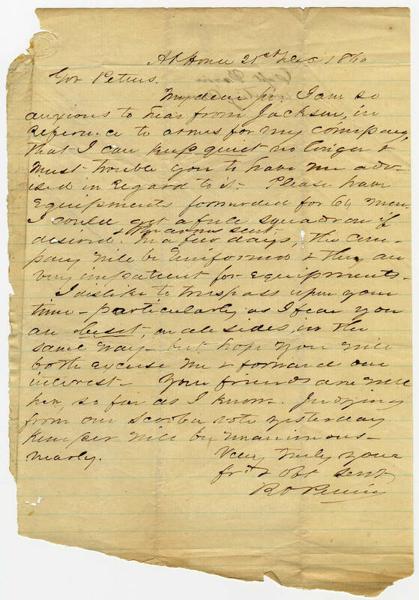 At Home 21st Dec 1860
Gov Pettus.
My dear Sir, I am so
anxious to hear from Jackson, in
reference to arms for my company,
that I can keep quiet no longer &
must trouble you to have me adv-
ised in regard to it - Please have
equipments forwarded for 64 men.
I could get a full squadron if
desired. & the arms sent
In a few days, this com-
pany will be uniformed & they are
very impatient for equipments -
I dislike to trespass upon your
time - particularly as I fear you
are beset, on all sides, in the
same way - but hope you will
both excuse me & forward our
interest - Your friends are well
here, so far as I know. Judging
from our Scooba vote yesterday
Kemper will be unanimous -
nearly.
Very truly your
frd & Obt Servt